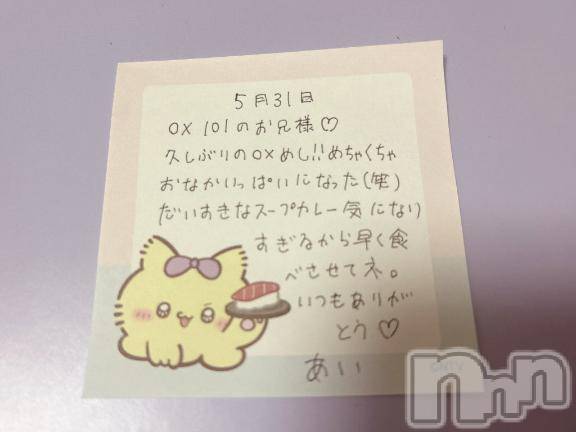 5月31日
OX 101のお兄様♡
久しぶりのOXめし!!めちゃくちゃ
おなかいっぱいになった(笑)
だいすきなスープカレー気になり
すぎるから早く食
べさせてネ。
いつもありが
とう♡
あい
nnn
©NTV